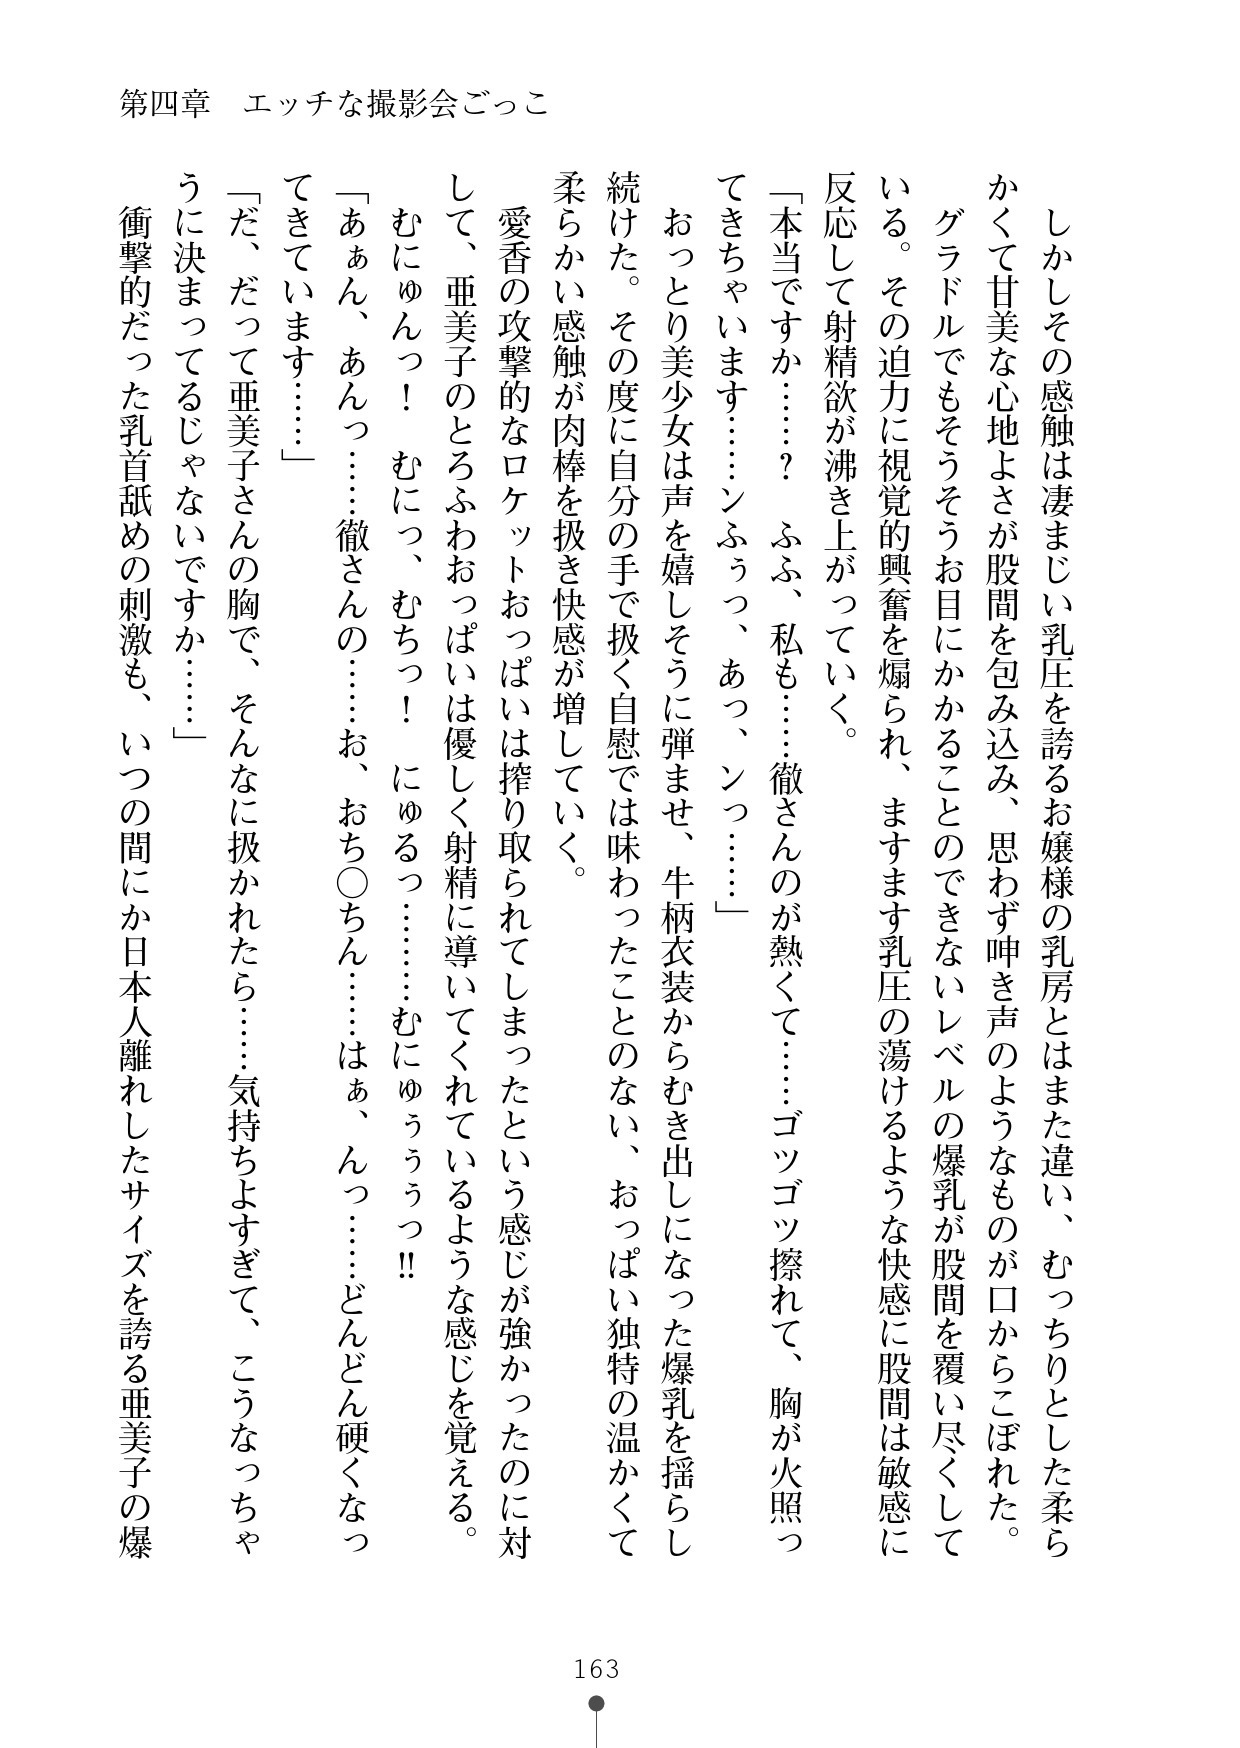 第四章　エッチな撮影会ごっこ
しかしその感触は凄まじい乳圧を誇るお嬢様の乳房とはまた違い、むっちりとした柔ら
かくて甘美な心地よさが股間を包み込み、思わず呻き声のようなものが口からこぼれた。
グラドルでもそうそうお目にかかることのできないレベルの爆乳が股間を覆い尽くして
いる。その迫力に視覚的興奮を煽られ、ますます乳圧の蕩けるような快感に股間は敏感に
反応して射精欲が沸き上がっていく。
「本当ですか……？　ふふ、私も……徹さんのが熱くて……ゴツゴツ擦れて、胸が火照っ
てきちゃいます……ンふぅっ、あっ、ンっ……」
おっとり美少女は声を嬉しそうに弾ませ、牛柄衣装からむき出しになった爆乳を揺らし
続けた。その度に自分の手で扱く自慰では味わったことのない、おっぱい独特の温かくて
柔らかい感触が肉棒を扱き快感が増していく。
愛香の攻撃的なロケットおっぱいは搾り取られてしまったという感じが強かったのに対
して、亜美子のとろふわおっぱいは優しく射精に導いてくれているような感じを覚える。
むにゅんっ！　むにっ、むちっ！　にゅるっ………むにゅぅぅぅっ‼
「あぁん、あんっ……徹さんの……お、おち〇ちん……はぁ、んっ……どんどん硬くなっ
てきています……」
「だ、だって亜美子さんの胸で、そんなに扱かれたら……気持ちよすぎて、こうなっちゃ
うに決まってるじゃないですか……」
衝撃的だった乳首舐めの刺激も、いつの間にか日本人離れしたサイズを誇る亜美子の爆
163